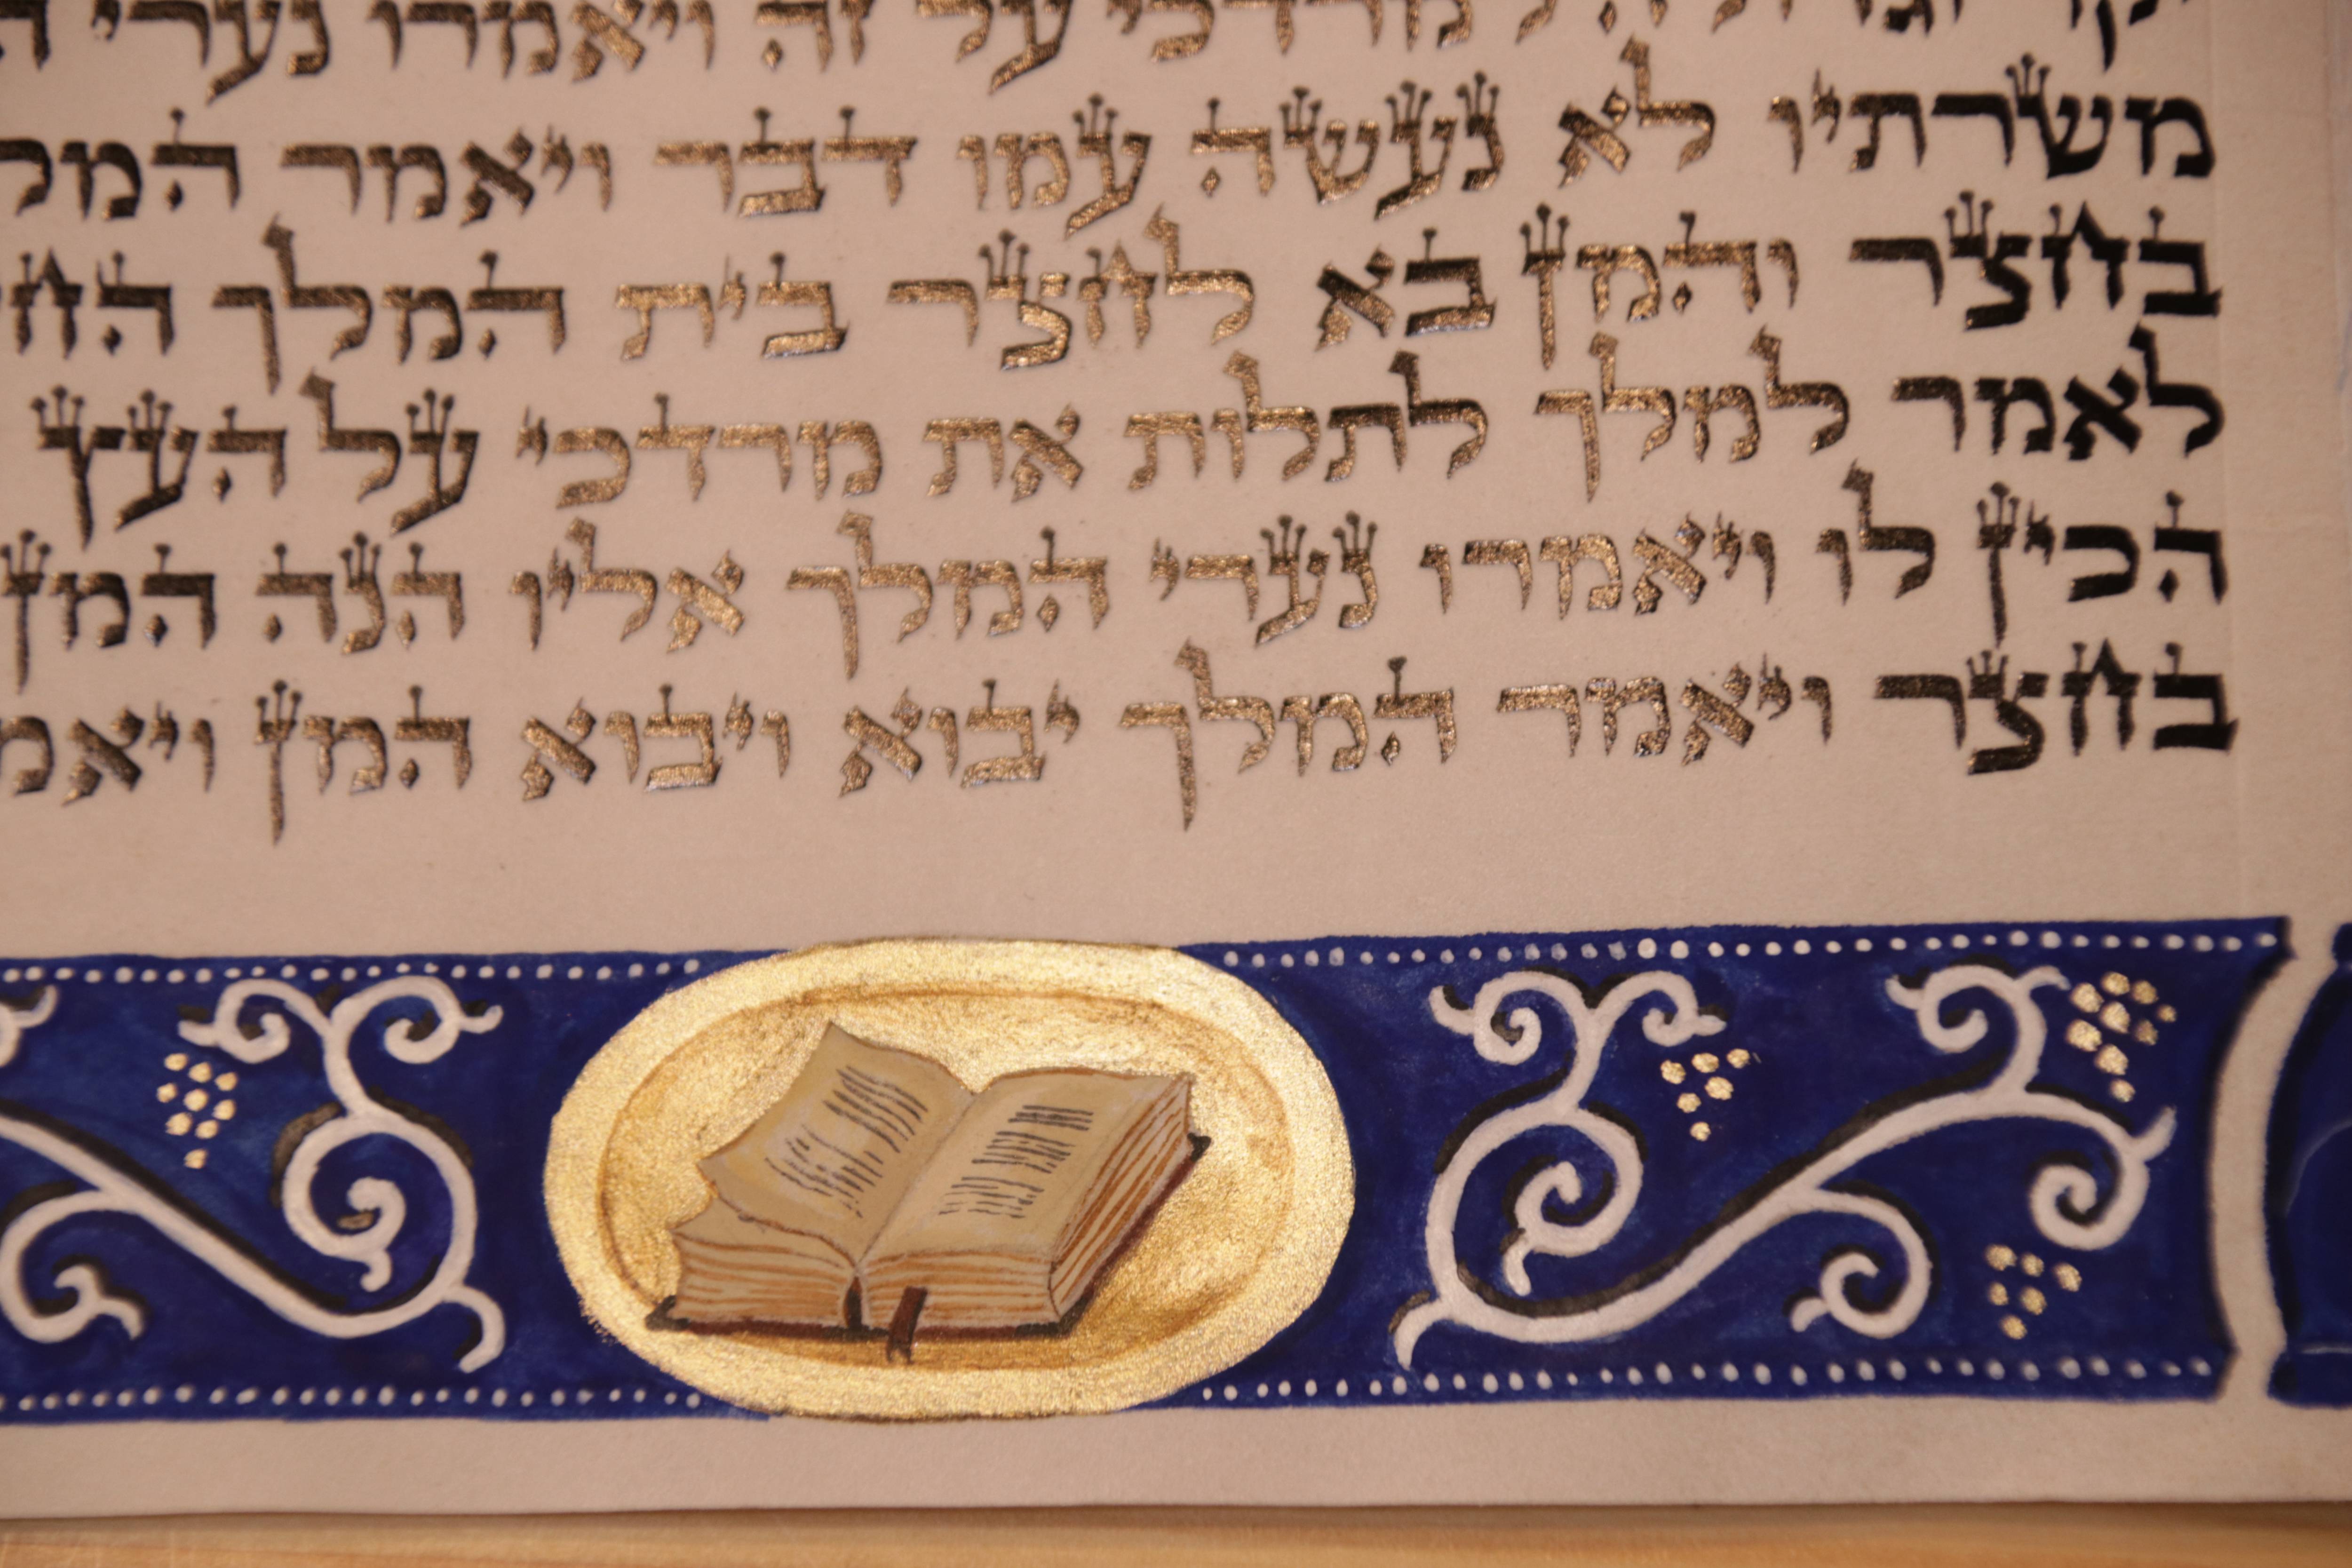 יקר וגדולה למרדכי על זה ויאמרו נערי
משרתיו לא נעשה עמו דבר ויאמר המל
בחצר והמן בא לחצר בית המלך הח
לאמר למלך לתלות את מרדכי על העץ
הכין לו ויאמרו נערי המלך אליו הנה המן
בחצר ויאמר המלך יבוא ויבוא המן ויאמ